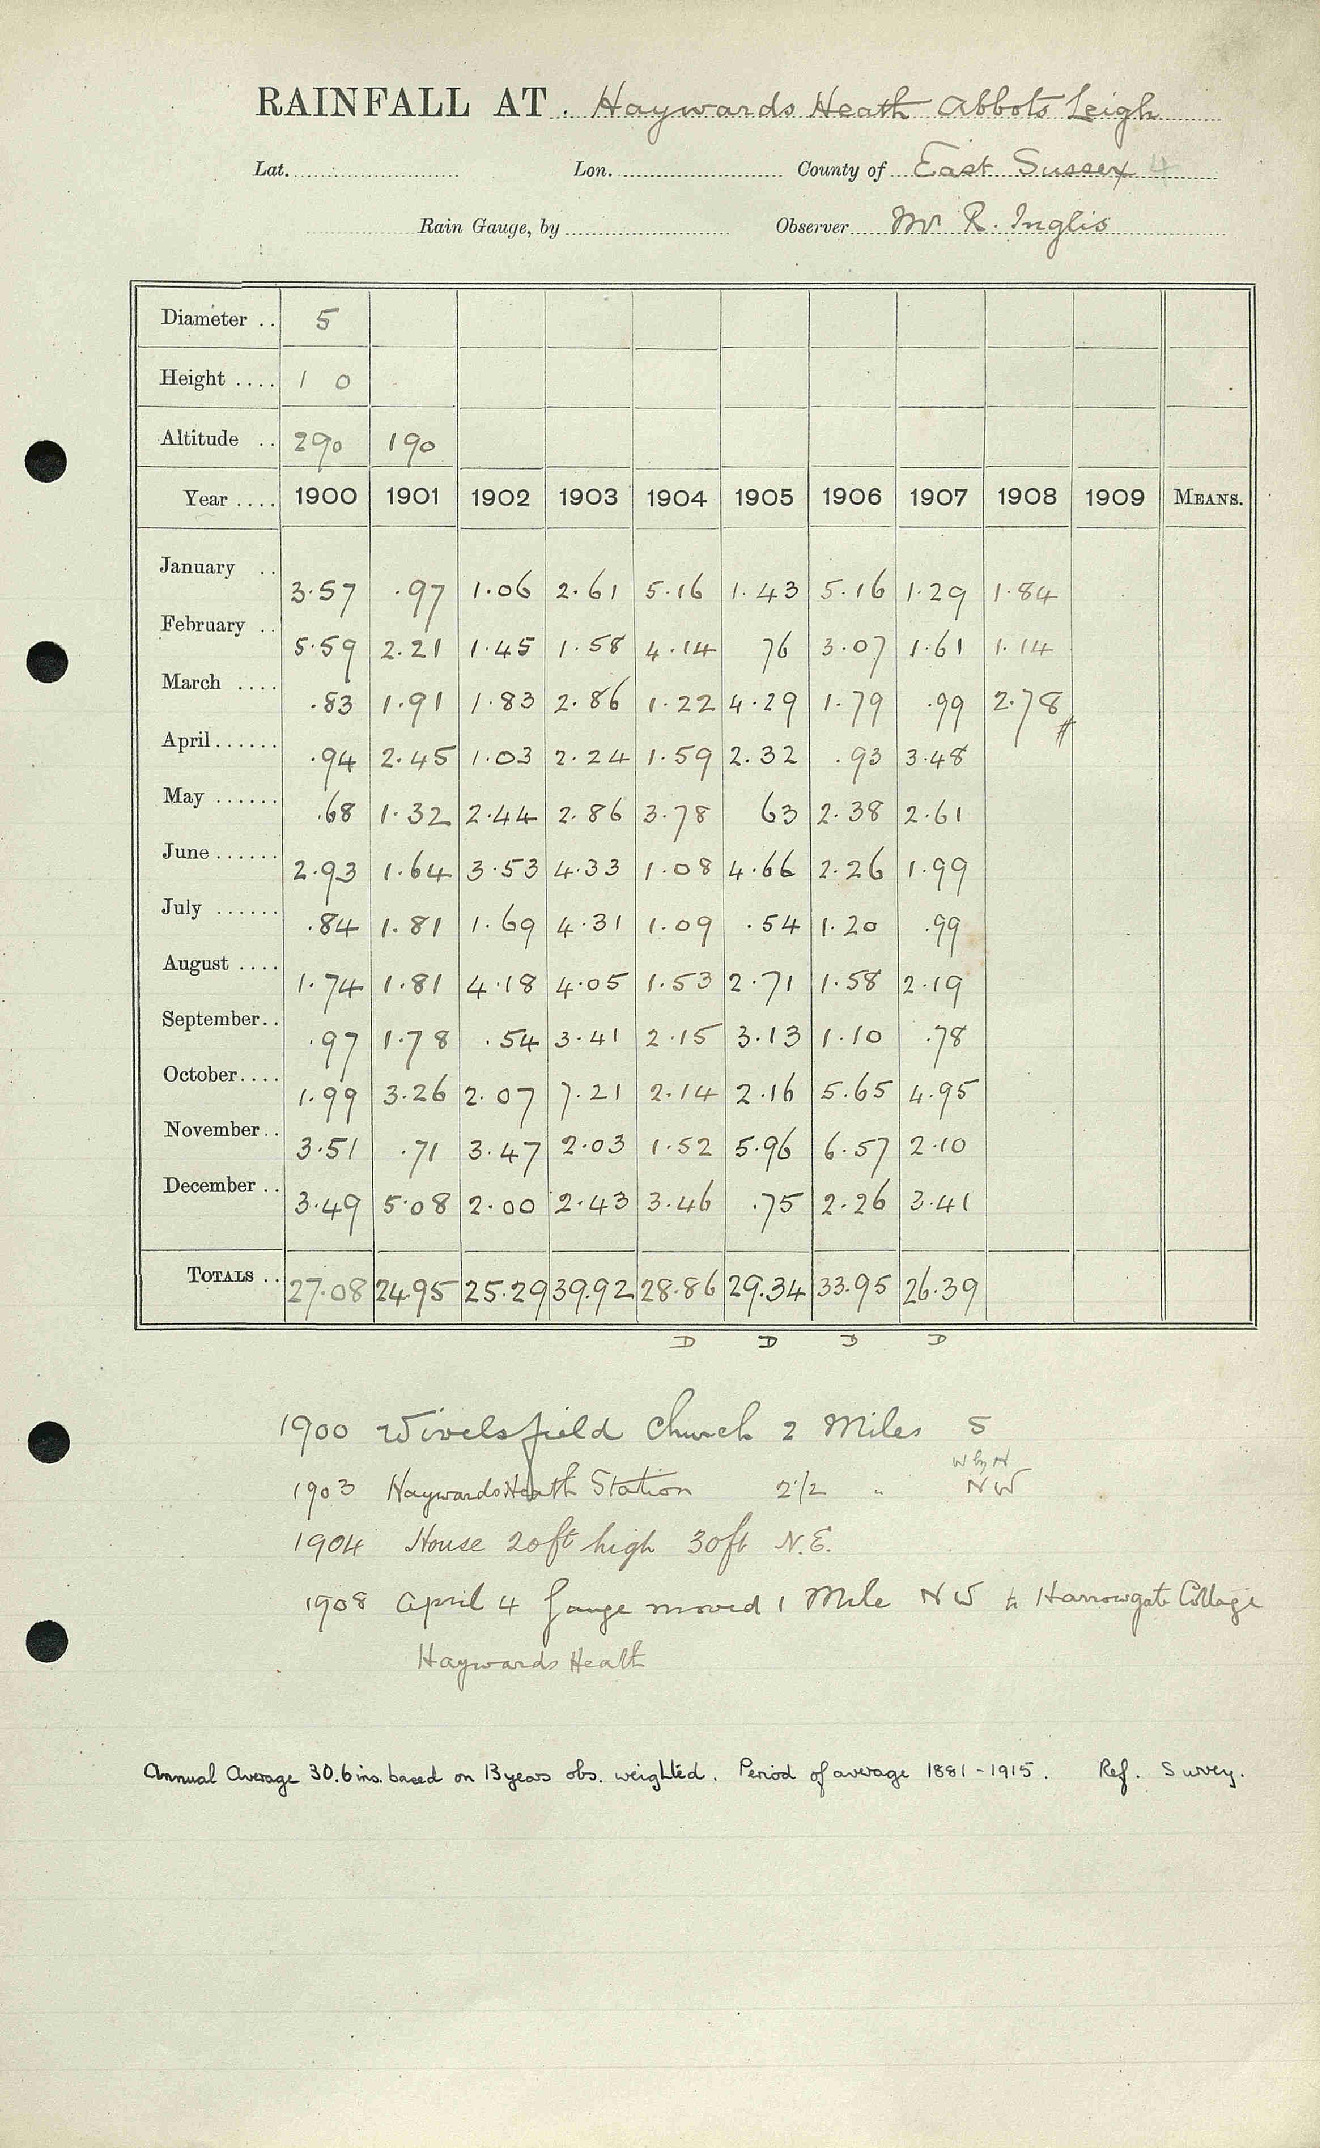 RAINFALL AT . Haywards Heath Abbots Leigh
Lat. Lon. County of East Sussex 4
Rain Gauge, by Observer Mr R. Inglis
Diameter .. 5
Height .... 1 0
Altitude .. 290 190
Year .... 1900 1901 1902 1903 1904 1905 1906 1907 1908 1909 MEANS.
January .. 3.57 .97 1.06 2.61 5.16 1.43 5.16 1.29 1.84
February .. 5.59 2.21 1.45 1.58 4.14 76 3.07 1.61 1.14
March .... .83 1.91 1.83 2.86 1.22 4.29 1.79 .99 2.78 #
April ...... .94 2.45 1.03 2.24 1.59 2.32 .93 3.48
May ...... .68 1.32 2.44 2.86 3.78 63 2.38 2.61
June ...... 2.93 1.64 3.53 4.33 1.08 4.66 2.26 1.99
July ...... .84 1.81 1.69 4.31 1.09 .54 1.20 .99
August .... 1.74 1.81 4.18 4.05 1.53 2.71 1.58 2.19
September .. .97 1.78 .54 3.41 2.15 3.13 1.10 .78
October .... 1.99 3.26 2.07 7.21 2.14 2.16 5.65 4.95
November .. 3.51 .71 3.47 2.03 1.52 5.96 6.57 2.10
December .. 3.49 5.08 2.00 2.43 3.46 .75 2.26 3.41
TOTALS .. 27.08 24.95 25.29 39.92 28.86 29.34 33.95 26.39
D D D D
1900 Wivelsfield Church 2 Miles S
W by N
1903 Haywards Heath Station 2 1/2 " NW
1904 House 20ft high 30ft N.E.
1908 April 4 Gauge moved 1 Mile NW to Harrowgate Cottage
Haywards Heath
Annual Average 30.6 ins. based on 13 years obs. weighted. Period of average 1881-1915. Ref. Survey.